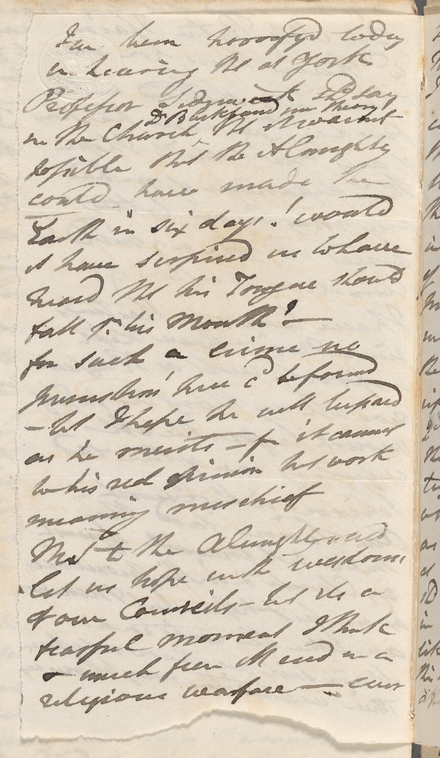 I've been horrofyd today
in hearing tht at York
Professor Sedgwick did say
Dr Buckland
in the Church tht it wasnt
possible tht the Almighty
could have made the
Earth in six days! would
it have surprised us to have
heard tht his Tongue should
fall fr. his Mouth? —
for such a crime no
punishmt here cd be found
- but I hope he will
as he merits — it cannot
be his real opinion but work
meaning mischief
the Almighty
let us hope with wisdom
of our Councils - but its a
fearful moment I think
& much fear tll end in a
religious warfare — ever